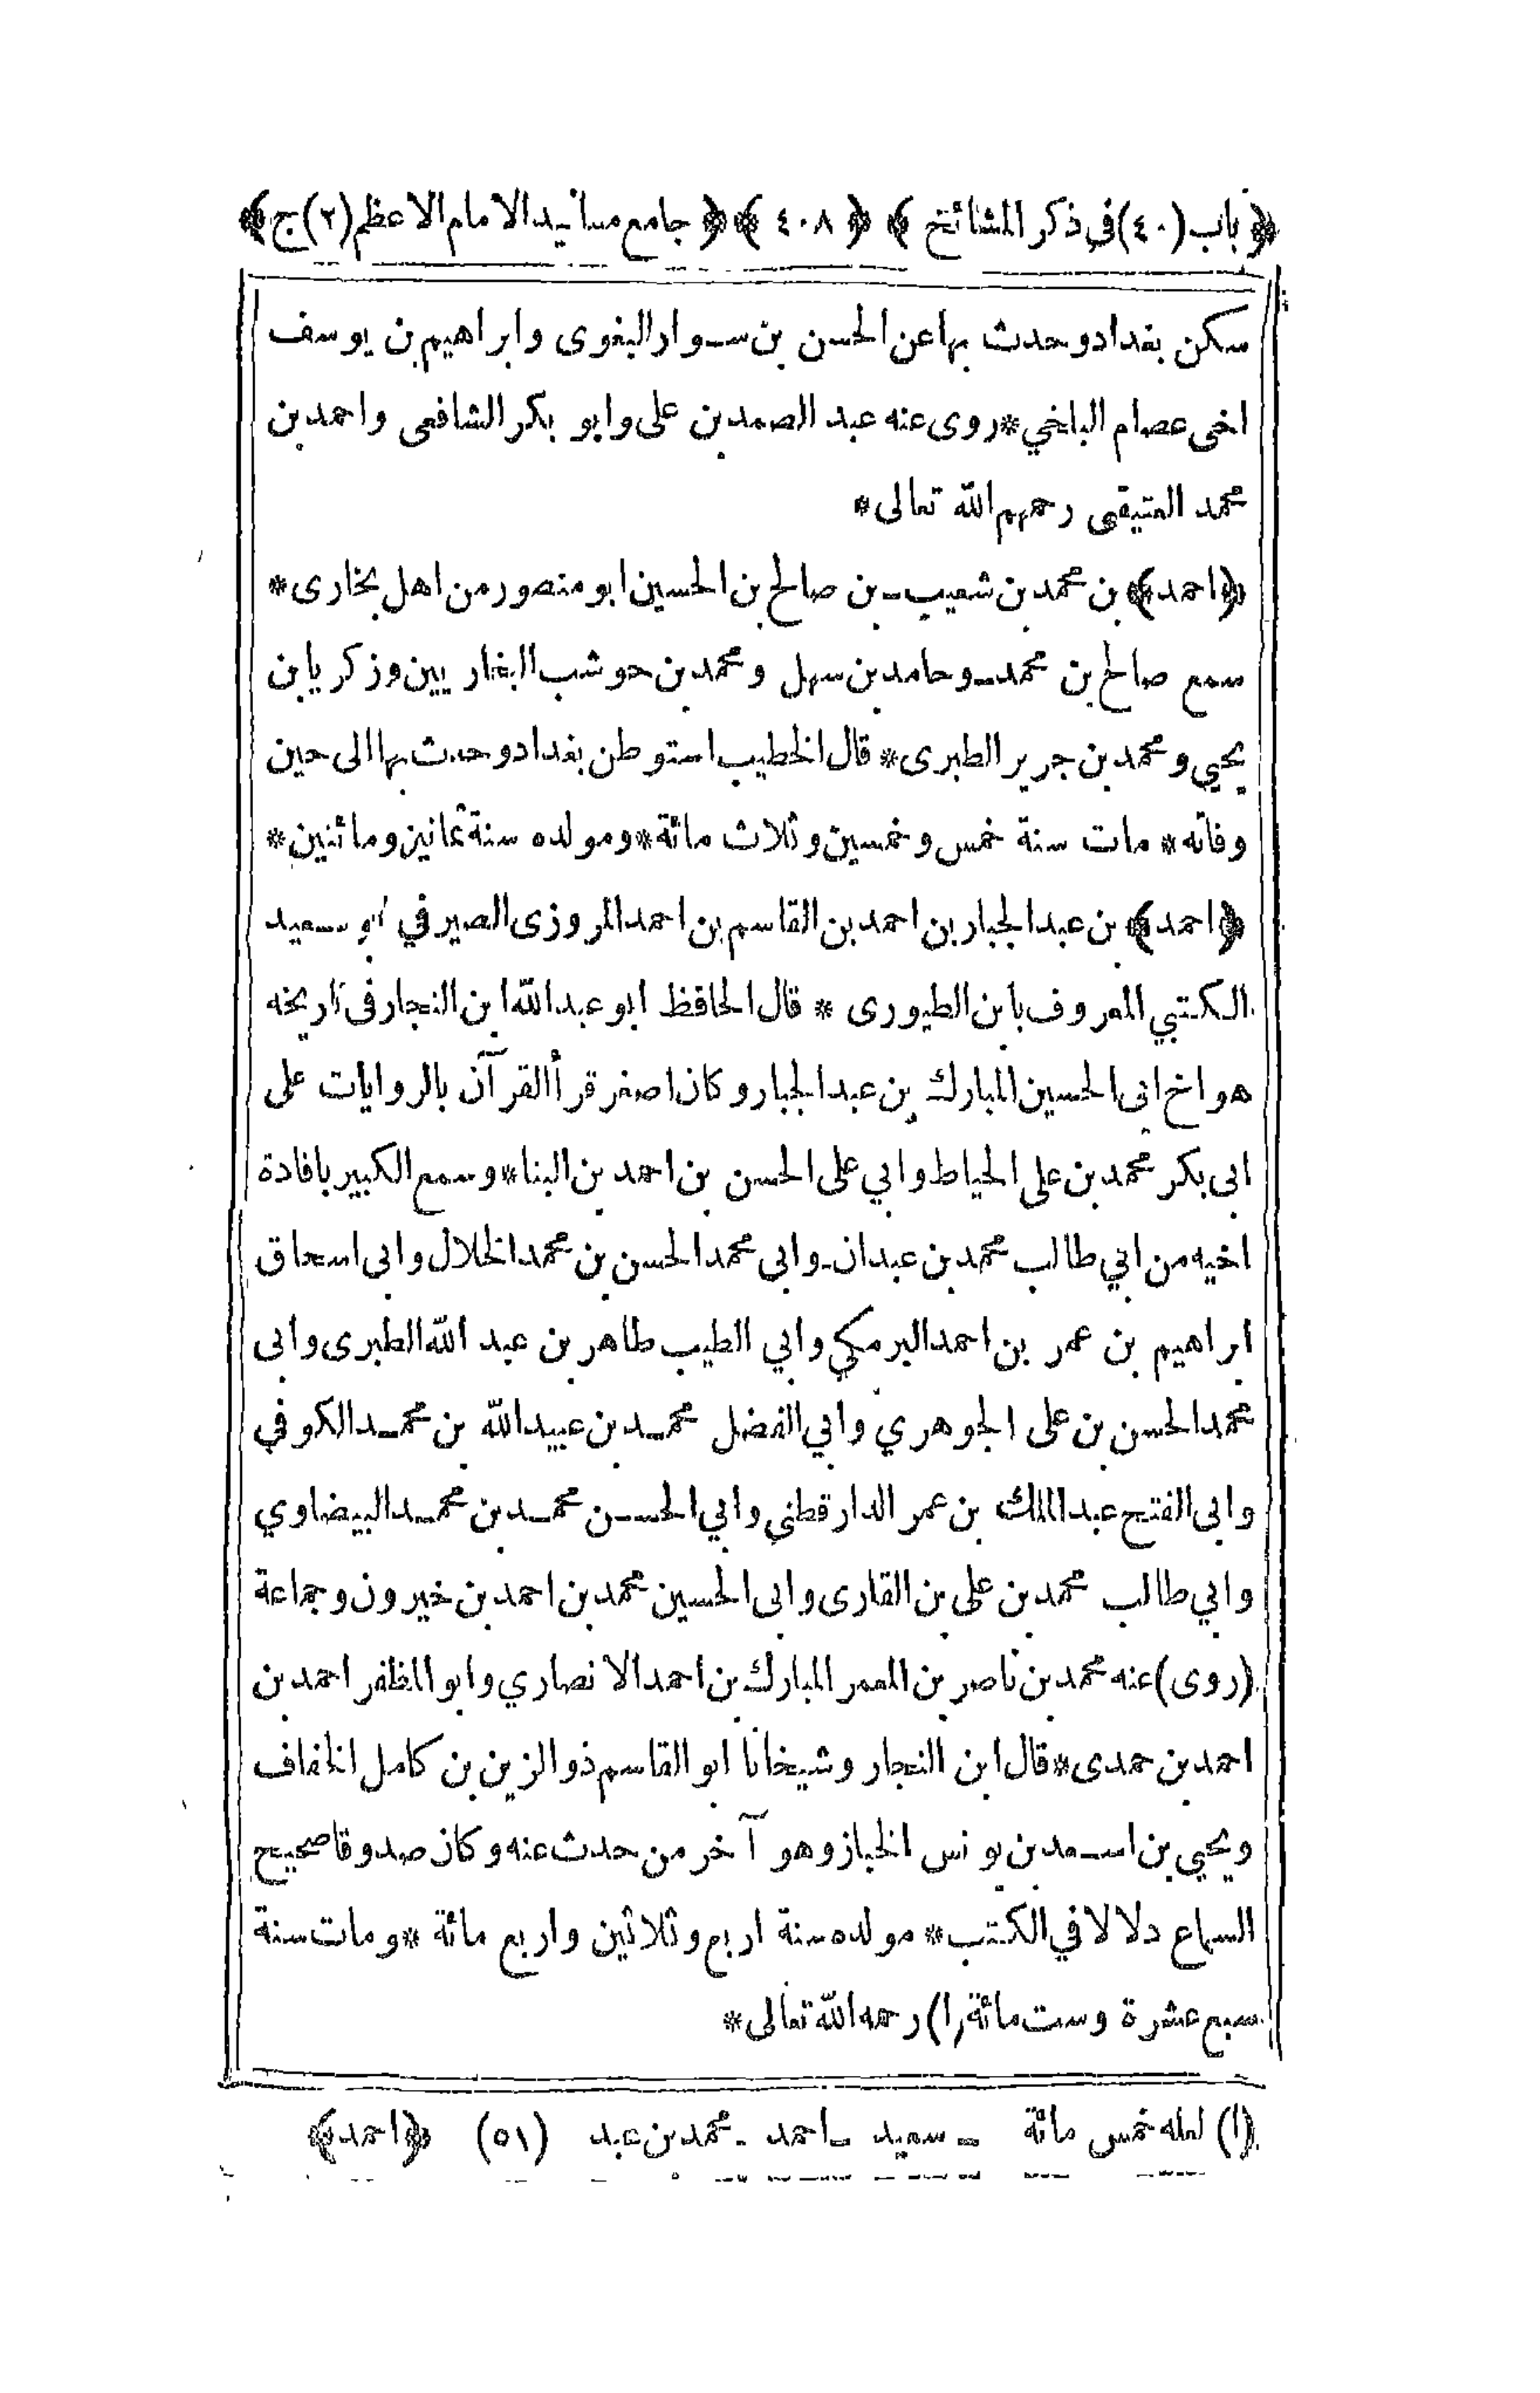 ﴿ باب (٤٠) في ذكر المشائخ ﴾ ﴿ ٤٠٨ ﴾ ﴿ جامع مسانيد الامام الاعظم (٢) ج ﴾
سكن بغداد وحدث بها عن الحسن بن سوار البغوى وابراهيم بن يوسف
اخى عصام البلخي * روى عنه عبد الصمد بن على وابو بكر الشافعى واحمد بن
محمد العتيقى رحمهم الله تعالى *
﴿ احمد ﴾ بن محمد بن شعيب بن صالح بن الحسين ابو منصور من اهل بخارى *
سمع صالح بن محمد وحامد بن سهل ومحمد بن حوشب البخاريين وزكريا بن
يحيي ومحمد بن جرير الطبرى * قال الخطيب استوطن بغداد وحدث بها الى حين
وفاته * مات سنة خمس وخمسين وثلاث مائة * ومولده سنة ثمانين ومائتين *
﴿ احمد ﴾ بن عبد الجبار بن احمد بن القاسم بن احمد المروزى الصيرفي ابو سعيد
الكتبي المعروف بابن الطيورى * قال الحافظ ابو عبد الله ابن النجار فى تاريخه
هو اخ ابى الحسين المبارك بن عبد الجبار وكان اصغر قرأ القرآن بالروايات على
ابى بكر محمد بن على الحياط وابي على الحسن بن احمد بن البنا * وسمع الكبير بافادة
اخيه من ابي طالب محمد بن عبدان وابى محمد الحسن بن محمد الخلال وابى اسحاق
ابراهيم بن عمر بن احمد البرمكي وابي الطيب طاهر بن عبد الله الطبرى وابى
محمد الحسن بن على الجوهري وابي الفضل محمد بن عبيد الله بن محمد الكوفي
وابى الفتح عبد الملك بن عمر الدار قطني وابي الحسن محمد بن محمد البيضاوي
وابي طالب محمد بن على بن القارى وابى الحسين محمد بن احمد بن خيرون وجماعة
(روى) عنه محمد بن ناصر بن المعمر المبارك بن احمد الانصاري وابو المظفر احمد بن
احمد بن حمدى * قال ابن النجار وشيخانا ابو القاسم ذو الزين بن كامل الخفاف
ويحيي بن اسعد بن يونس الخباز وهو آخر من حدث عنه وكان صدوقا صحيح
السماع دلالا في الكتب * مولده سنة اربع وثلاثين واربع مائة * ومات سنة
سبع عشرة وست مائة (١) رحمه الله تعالى *
(١) لعله خمس مائة - سعيد - احمد - محمد بن عبد (٥١) ﴿ احمد ﴾